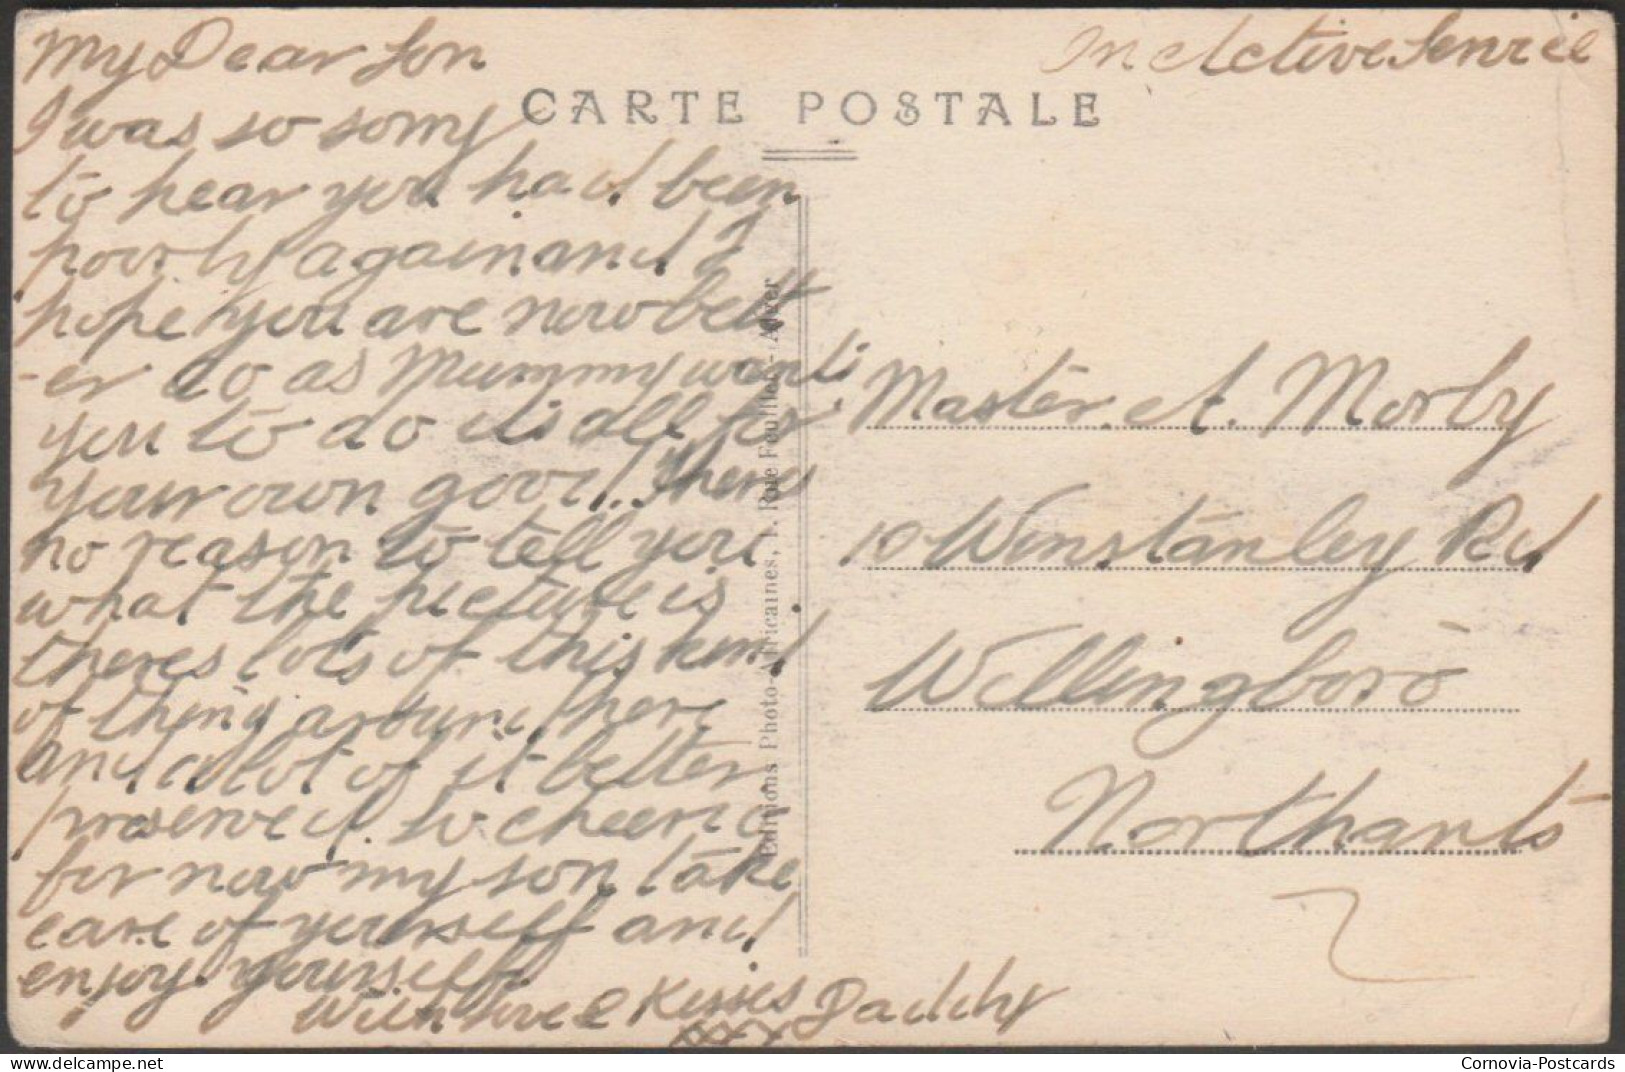 My Dear Son
On Active Service
CARTE POSTALE
I was so sorry
to hear you had been
poorly again and I
hope you are now bett
-er do as Mummy wants
you to do its all for
your own good. Theres
no reason to tell you
what the picture is
theres lots of this kind
of thing around here
and a lot of it better
preserved. So cheerio
for now my son take
care of yourself and
enjoy yourself.
With love & Kisses Daddy
xxxx
Editions Photo-Africaines, 1. Rue Feuillet - Alger
Master. A. Morby
10 Winstanley Rd
Wellingboro
Northants
Cornovia-Postcards
delcampe.net